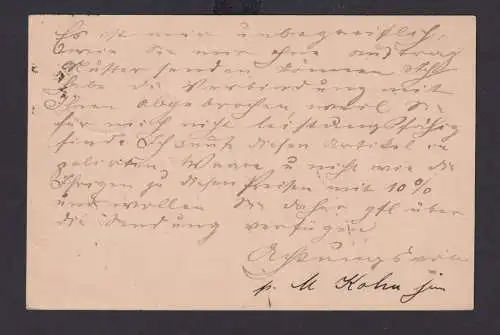 Es ist mir unbegreiflich,
wie Sie mir ohne Auftrag
Muster senden können. Ich
habe die Verbindung mit
Ihnen abgebrochen weil Sie
für mich nicht leistungsfähig
sind. Ich kaufe diesen Artikel in
Waare u nicht wie die
Ihrigen zu diesen Preisen mit 10%
und wollen Sie daher gfl über
die Sendung verfügen
Achtungsvoll
p. M Kohn jun